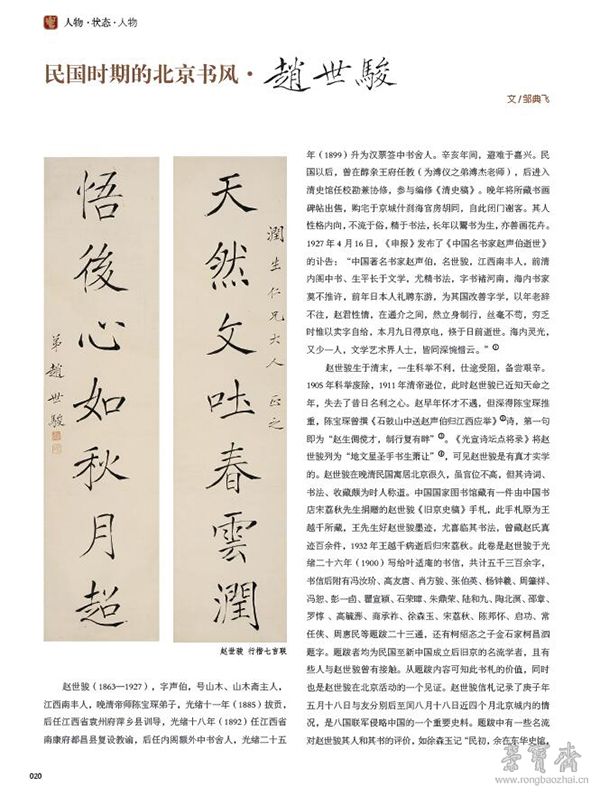 人物·状态·人物
民国时期的北京书风·趙世駿
文/邹典飞
天然文吐春雲潤
潤生仁兄大人 正之
悟後心如秋月超
弟趙世駿
赵世骏 行楷七言联
赵世骏（1863—1927），字声伯，号山木、山木斋主人，
江西南丰人，晚清帝师陈宝琛弟子，光绪十一年（1885）拔贡，
后任江西省袁州府萍乡县训导，光绪十八年（1892）任江西省
南康府都昌县复设教谕，后任内阁额外中书舍人，光绪二十五
年（1899）升为汉票签中书舍人。辛亥年间，避难于嘉兴。民
国以后，曾在醇亲王府任教（为溥仪之弟溥杰老师），后进入
清史馆任校勘兼协修，参与编修《清史稿》。晚年将所藏书画
碑帖出售，购宅于京城什刹海官房胡同，自此闭门谢客。其人
性格内向，不流于俗，精于书法，长年以鬻书为生，亦善画花卉。
1927 年 4 月 16 日，《申报》发布了《中国名书家赵声伯逝世》
的讣告：“中国著名书家赵声伯，名世骏，江西南丰人，前清
内阁中书、生平长于文学，尤精书法，字书褚河南，海内书家
莫不推许，前年日本人礼聘东游，为其国改善字学，以年老辞
不往，赵君性情，在通介之间，然立身制行，丝毫不苟，穷乏
时惟以卖字自给，本月九日得京电，倏于日前逝世。海内灵光，
又少一人，文学艺术界人士，皆同深惋惜云。”①
赵世骏生于清末，一生科举不利，仕途受阻，备尝艰辛。
1905 年科举废除，1911 年清帝逊位，此时赵世骏已近知天命之
年，失去了昔日名利之心。赵早年怀才不遇，但深得陈宝琛推
重，陈宝琛曾撰《石鼓山中送赵声伯归江西应举》②诗，第一句
即为“赵生倜傥才，制行复有畔”③。《光宣诗坛点将录》将赵
世骏列为“地文星圣手书生萧让”④，可见赵世骏是有真才实学
的。赵世骏在晚清民国寓居北京很久，虽官位不高，但其诗词、
书法、收藏颇为时人称道。中国国家图书馆藏有一件由中国书
店宋荔秋先生捐赠的赵世骏《旧京史稿》手札，此手札原为王
越千所藏，王先生好赵世骏墨迹，尤喜临其书法，曾藏赵氏真
迹百余件，1932 年王越千病逝后归宋荔秋。此卷是赵世骏于光
绪二十六年（1900）写给叶适庵的书信，共计五千三百余字，
书信后附有冯汝玠、高友唐、肖方骏、张伯英、杨钟羲、周肇祥、
冯恕、彭一卣、瞿宣颖、石荣暲、朱鼎荣、陆和九、陶北溟、邵章、
罗惇㬊、高毓浵、商承祚、徐森玉、宋荔秋、陈邦怀、启功、常
任侠、周惠民等题跋二十三通，还有柯绍忞之子金石家柯昌泗
题字。题跋者均为民国至新中国成立后旧京的名流学者，且有
些人与赵世骏曾有接触。从题跋内容可知此书札的价值，同时
也是赵世骏在北京活动的一个见证。赵世骏信札记录了庚子年
五月十八日与友分别后至闰八月十八日近四个月北京城内的情
况，是八国联军侵略中国的一个重要史料。题跋中有一些名流
对赵世骏其人和其书的评价，如徐森玉记“民初，余在东华史馆，
020
荣宝斋
www.rongbaozhai.cn